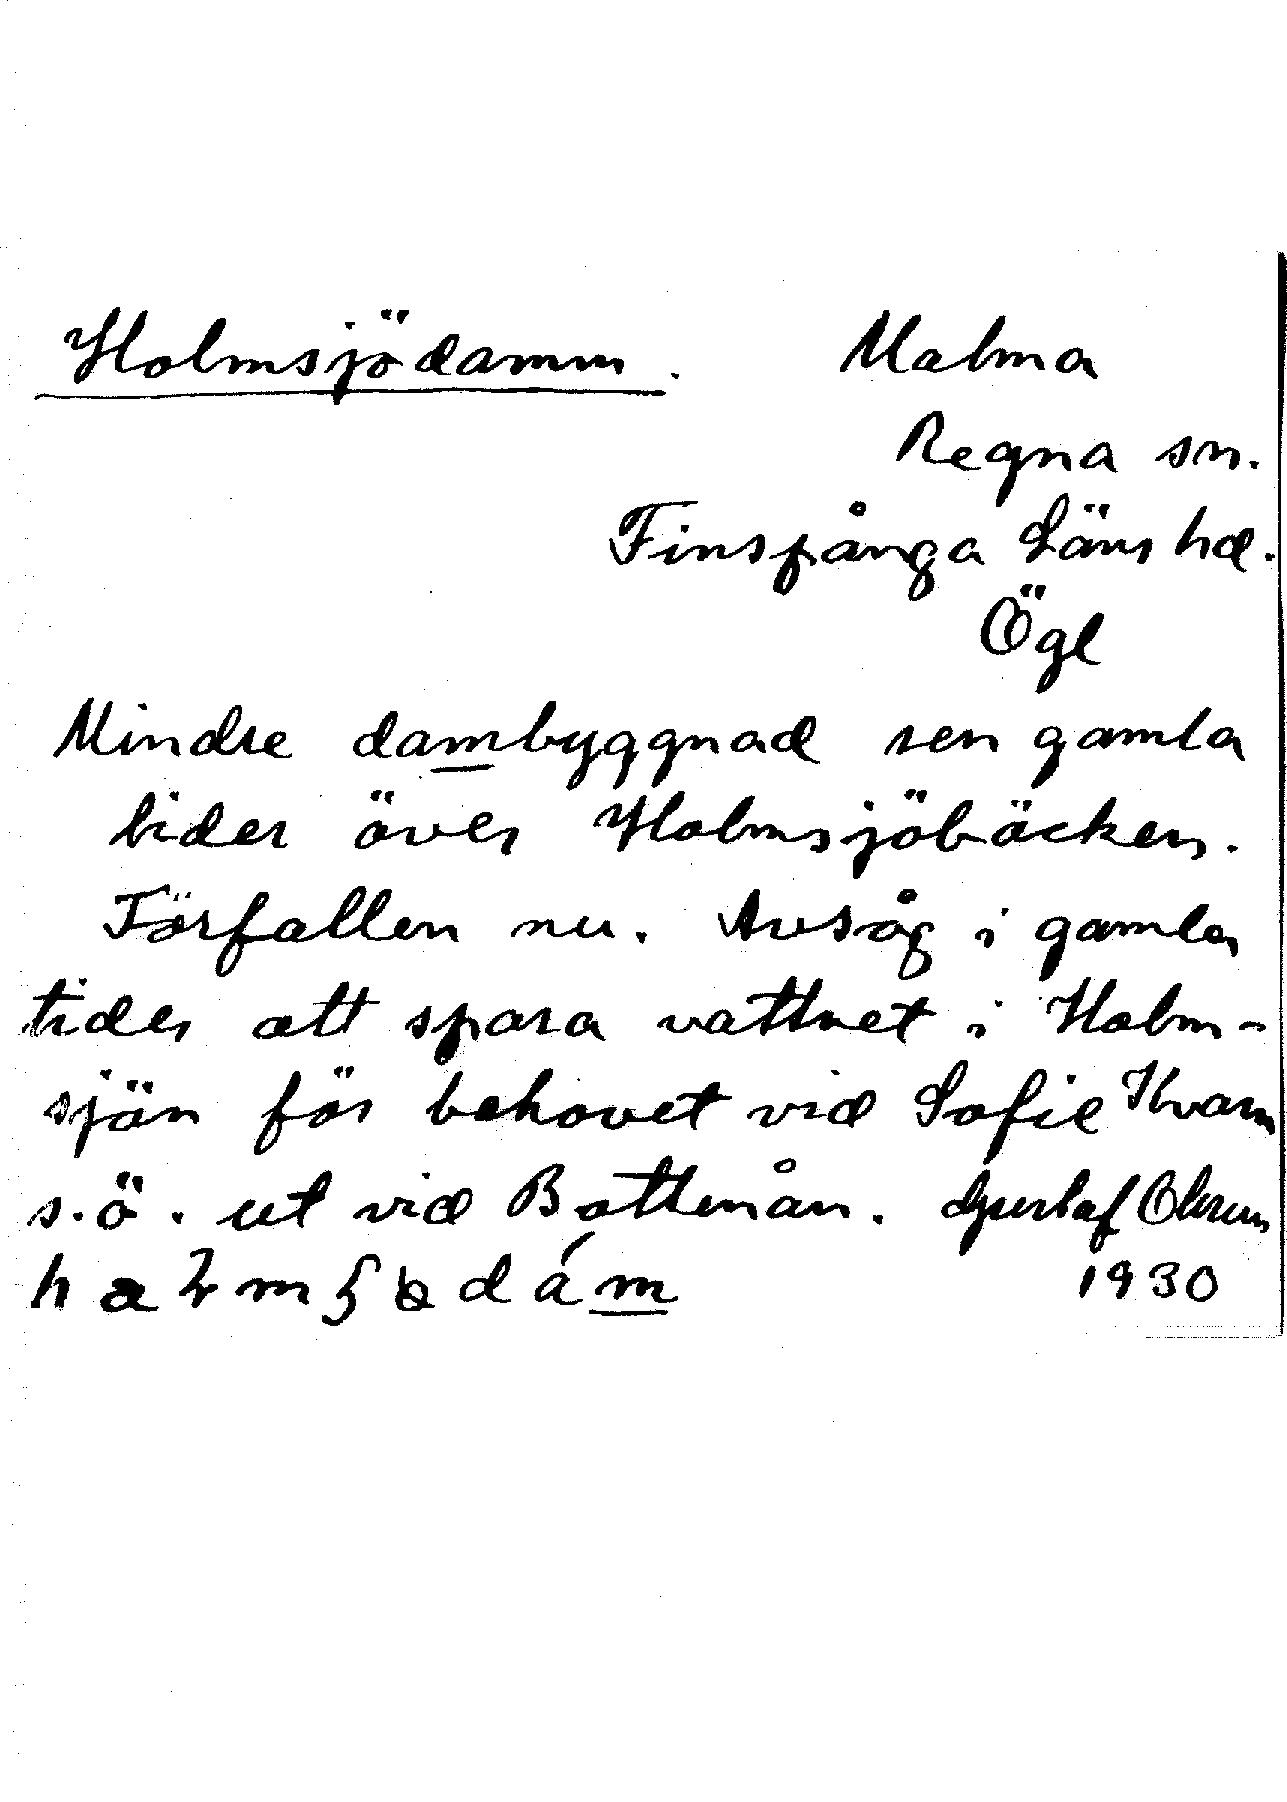 Holmsjödamm. Malma
Regna sn.
Finspånga Läns hd.
Ögl
Mindre dambyggnad sen gamla
tider över Holmsjöbäcken.
Förfallen nu. Avsåg i gamla
tider att spara vattnet i Holm-
sjön för behovet vid Sofie Kvarn
s.ö. ut vid Bottenån. Gustaf Olsson
1930